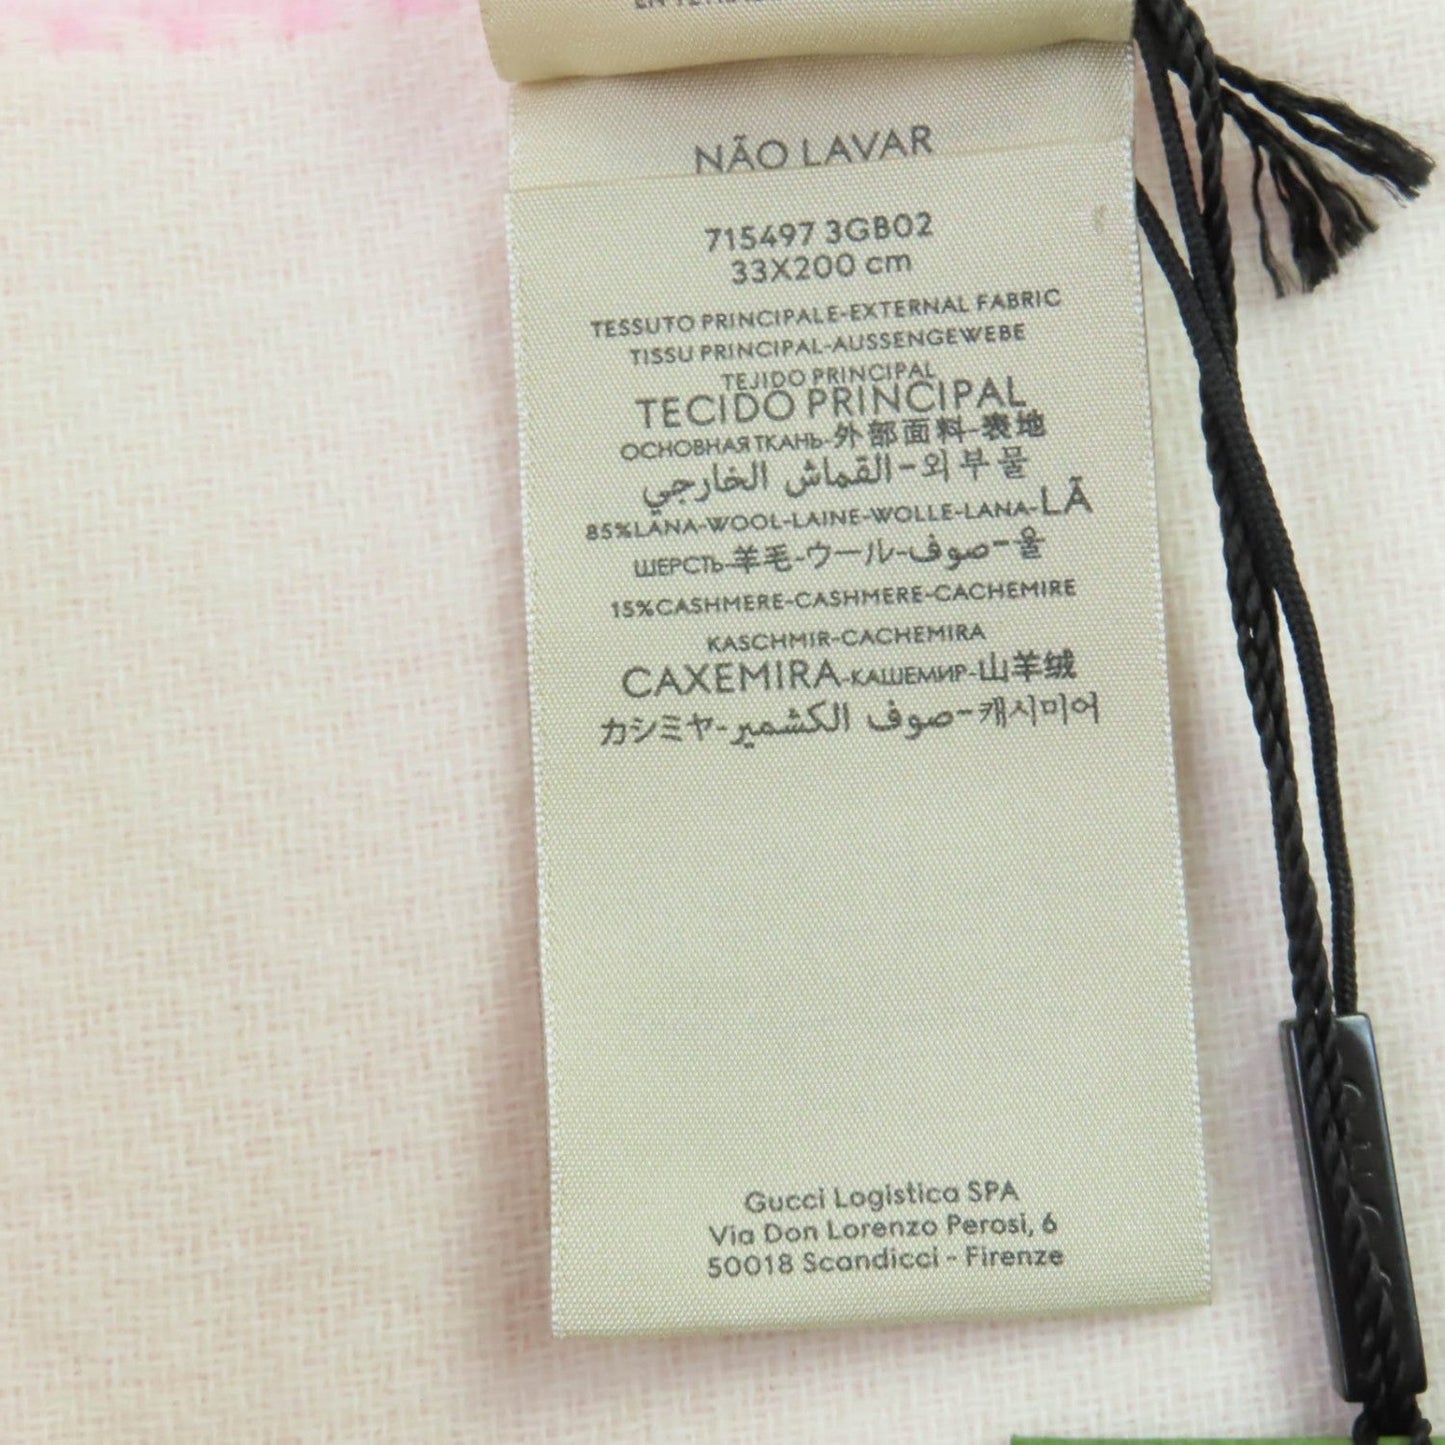 NÃO LAVAR
715497 3GB02
33X200 cm
TESSUTO PRINCIPALE-EXTERNAL FABRIC
TISSU PRINCIPAL-AUSSENGEWEBE
TEJIDO PRINCIPAL
TECIDO PRINCIPAL
ОСНОВНАЯ ТКАНЬ-外部面料-表地
القماش الخارجي-외부물
85%LANA-WOOL-LAINE-WOLLE-LANA-LÃ
ШЕРСТЬ-羊毛-ウール-صوف-울
15%CASHMERE-CASHMERE-CACHEMIRE
KASCHMIR-CACHEMIRA
CAXEMIRA-КАШЕМИР-山羊绒
カシミヤ-صوف الكشمير-캐시미어
Gucci Logistica SPA
Via Don Lorenzo Perosi, 6
50018 Scandicci - Firenze
GUCCI